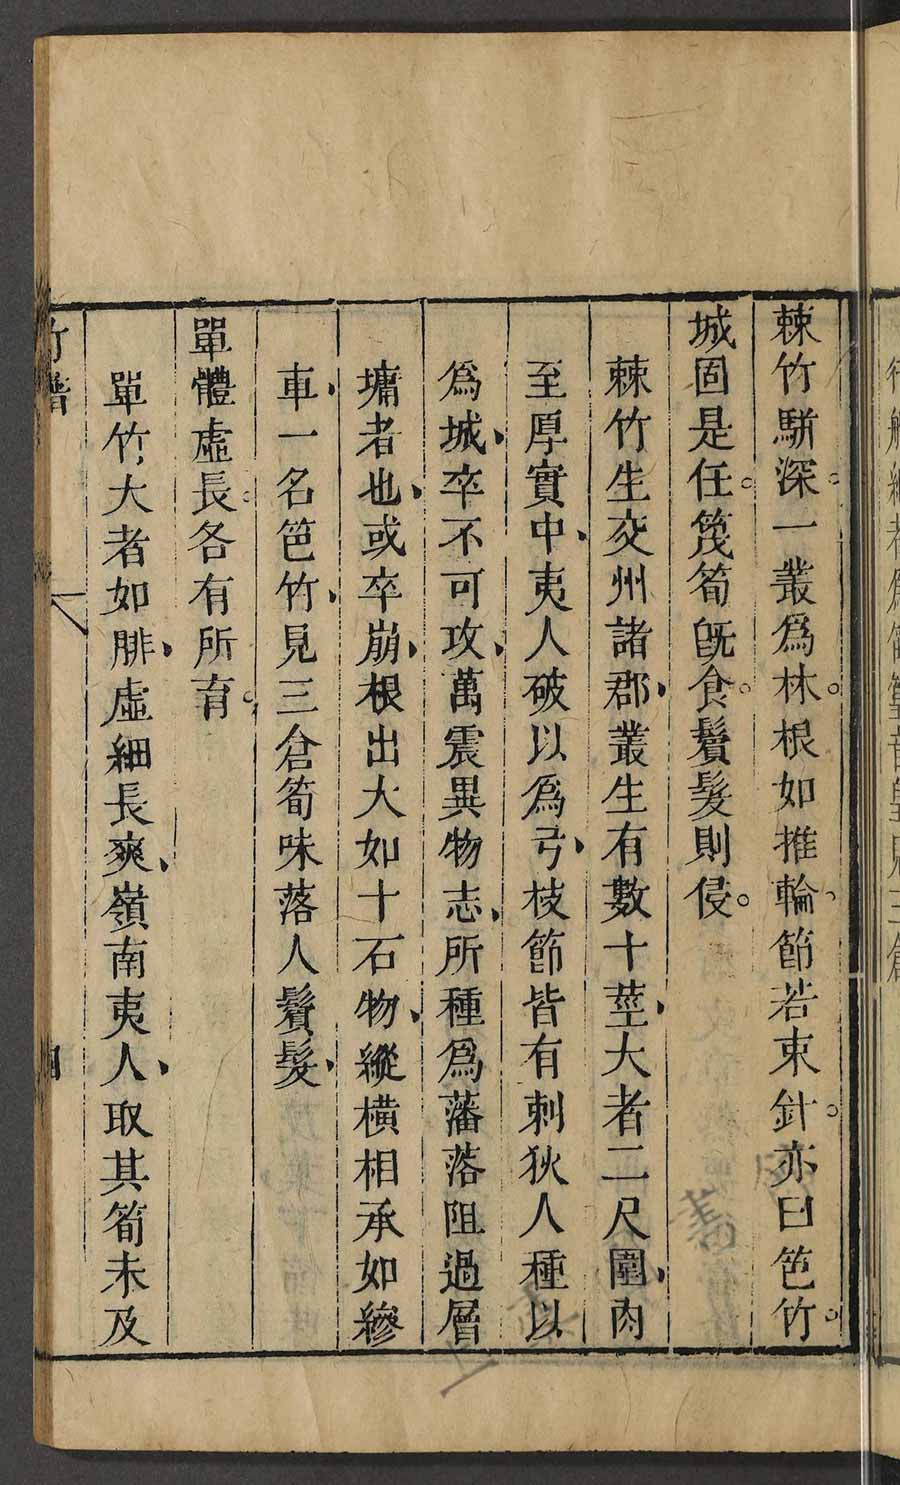 棘竹駢深。一叢爲林。根如推輪、節若束針。亦曰笆竹。
城固是任。篾筍旣食。鬢髮則侵。
棘竹生交州諸郡、叢生有數十莖、大者二尺圍、肉
至厚實中、夷人破以爲弓、枝節皆有刺狄人種以
爲城、卒不可攻、萬震異物志、所種爲藩落阻過層
墉者也、或卒崩、根出大如十石物、縱橫相承如縿
車、一名笆竹、見三倉筍味落人鬚髮、
單體虛長。各有所育。
單竹、大者如腓、虛細長爽、嶺南夷人、取其筍未及
竹譜
四